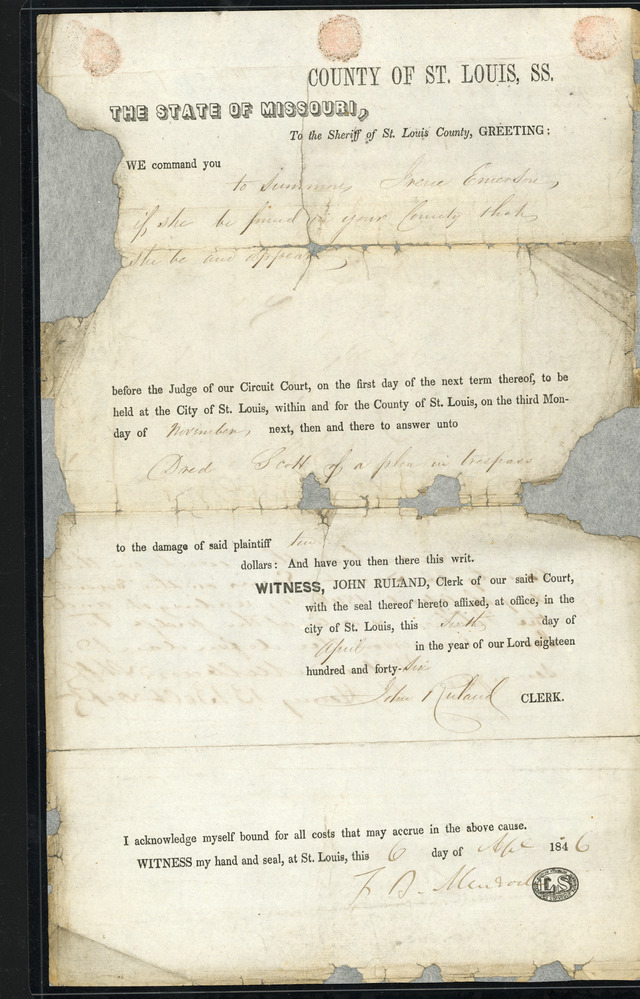 COUNTY OF ST. LOUIS, SS.
THE STATE OF MISSOURI,
To the Sheriff of St. Louis County, GREETING:
WE command you
to summons Irene Emerson,
if she be found in your County that
she be and appear
before the Judge of our Circuit Court, on the first day of the next term thereof, to be
held at the City of St. Louis, within and for the County of St. Louis, on the third Mon-
day of November, next, then and there to answer unto
Dred Scott of a plea in trespass
to the damage of said plaintiff ten
dollars: And have you then there this writ.
WITNESS, JOHN RULAND, Clerk of our said Court,
with the seal thereof hereto affixed, at office, in the
city of St. Louis, this sixth day of
April in the year of our Lord eighteen
hundred and forty-six
John Ruland CLERK.
I acknowledge myself bound for all costs that may accrue in the above cause.
WITNESS my hand and seal, at St. Louis, this 6 day of Apl 1846
F B. Murdoch LS